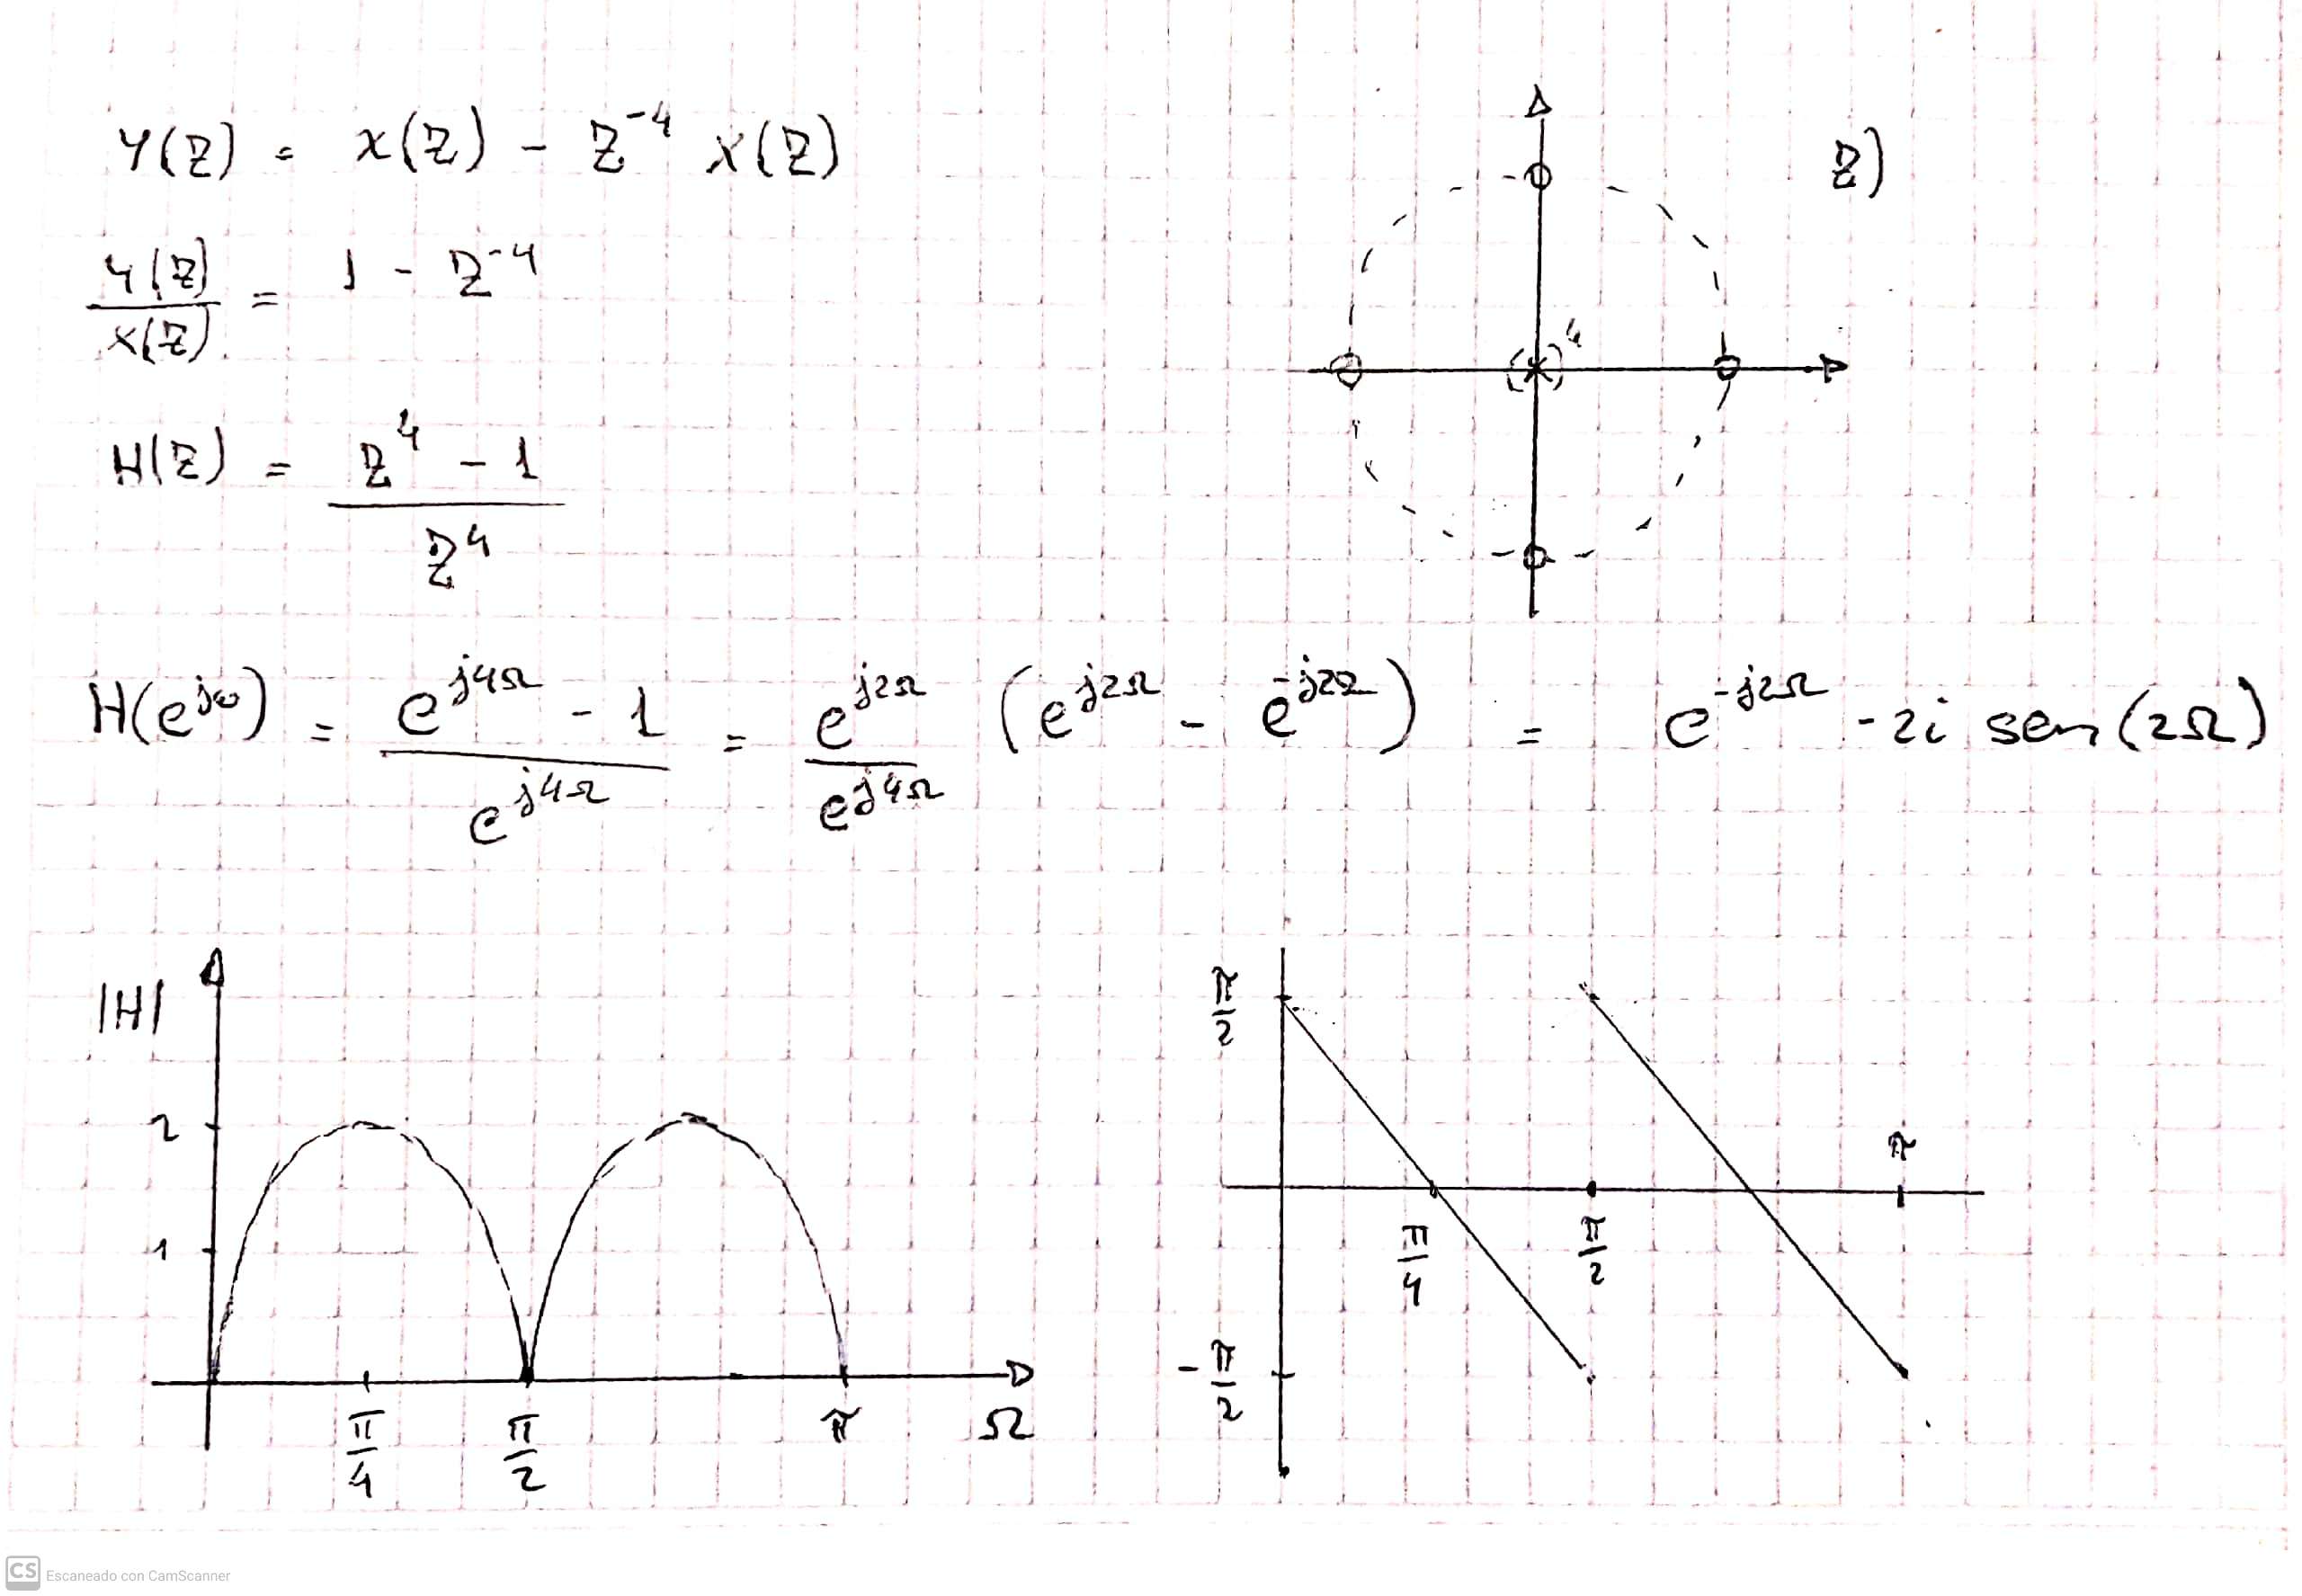 Y(Z) = X(Z) - Z^-4 X(Z)
Z)
Y(Z)/X(Z) = 1 - Z^-4
( )^4
H(Z) = (Z^4 - 1)/Z^4
H(e^jω) = (e^j4Ω - 1)/e^j4Ω = e^j2Ω/e^j4Ω (e^j2Ω - e^-j2Ω) = e^-j2Ω - 2i sen(2Ω)
|H|
2
1
π/4
π/2
π
Ω
π/2
π
π/4
π/2
-π/2
CS Escaneado con CamScanner